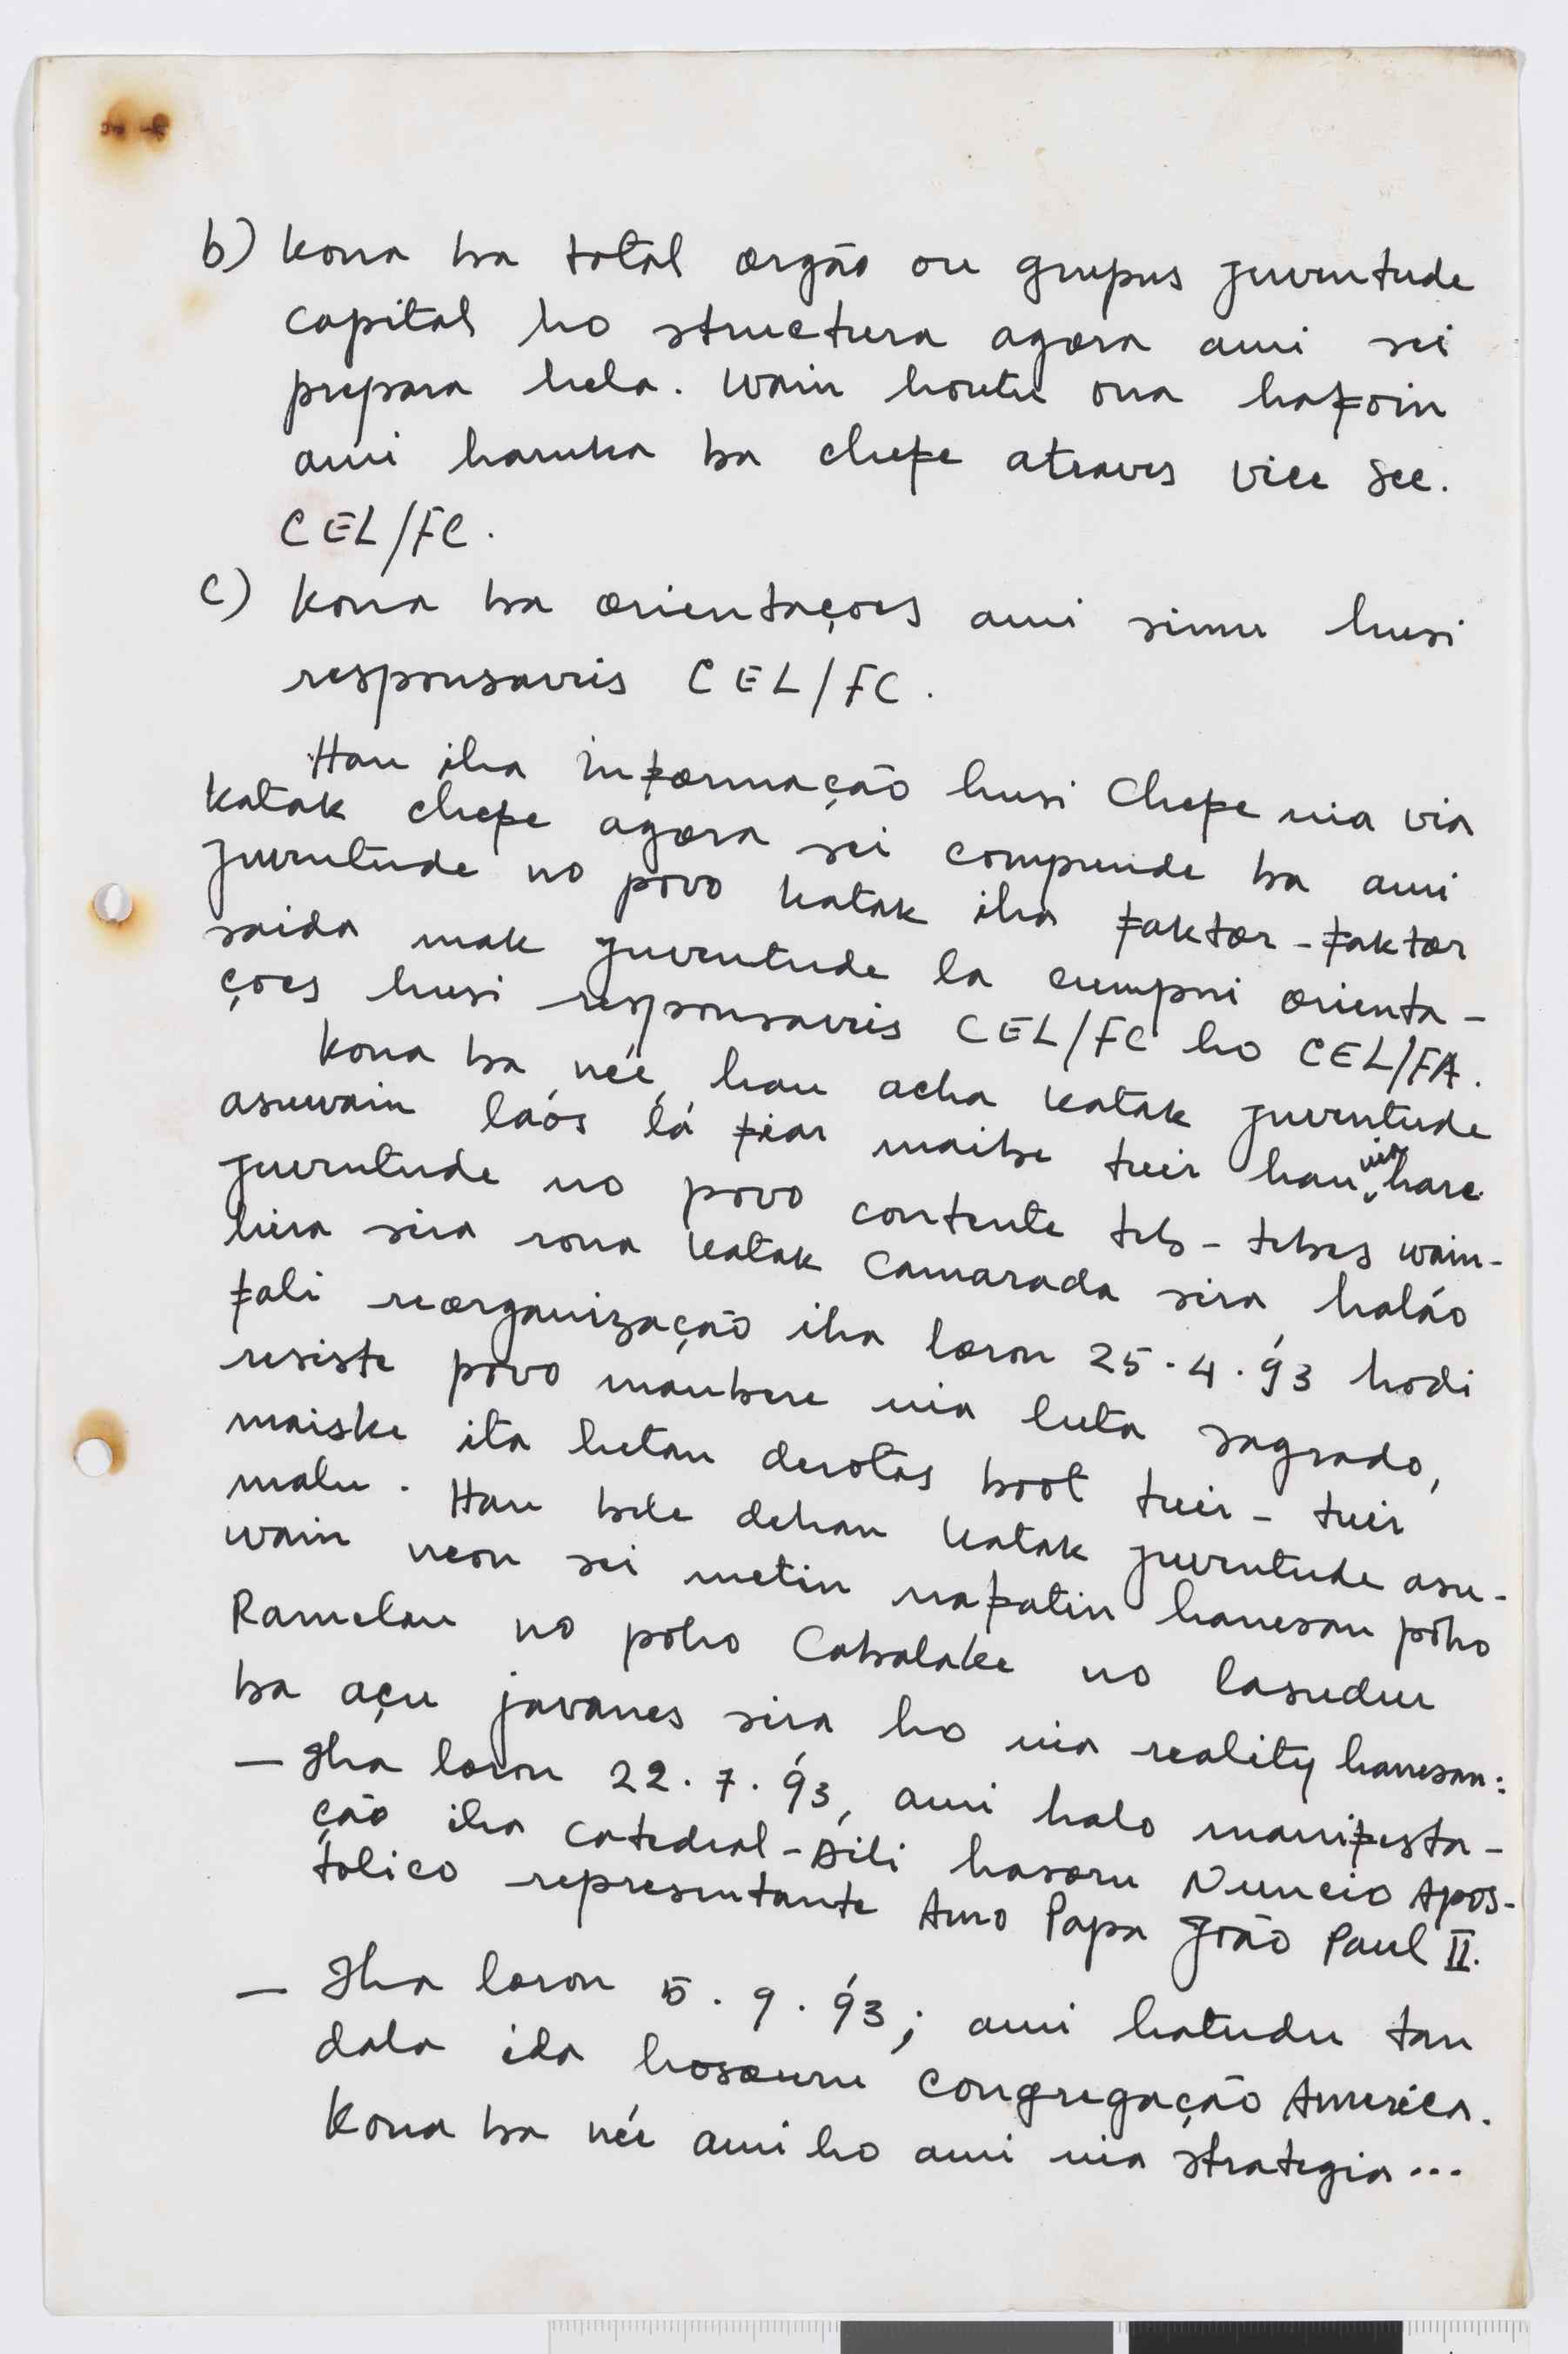 b) kona ba total orgão ou grupus juventude
capital ho structura agora ami sei
prepara hela. Wain hontu ona hafoin
ami haruka ba chefe atraves vice Sec.
CEL/FC.
c) kona ba orientaçoes ami simu husi
responsaveis CEL/FC.
Hau iha informação husi Chefe nia via
katak chefe agora sei comprende ba ami
juventude no povo katak iha faktor-faktor
saida mak juventude la cumpri orienta-
çoes husi responsaveis CEL/FC ho CEL/FA.
Kona ba née, hau acha katak juventude
asuwain laós lá fiar maibe tuir hau nia hare
juventude no povo contente teb-tebes wain-
hira sira rona katak Camarada sira haláo
fali reorganização iha loron 25.4.'93 hodi
resiste povo maubere nia luta sagrado,
maiske ita hetan derotas boot tuir-tuir
malu. Hau bele dehan katak juventude asu-
wain neon sei metin nafatin hanesan foho
Ramelau no foho Cabalake no lasudur
ba açu javanes sira ho nia reality hanesan:
— Iha loron 22.7.'93, ami halo manifesta-
ção iha catedral-Dili hasoru Nuncio Apos-
tolico representante Amo Papa João Paul II.
— Iha loron 5.9.'93; ami hatudu tan
dala ida hosouru Congregação America.
Kona ba née ami ho ami nia strategia...